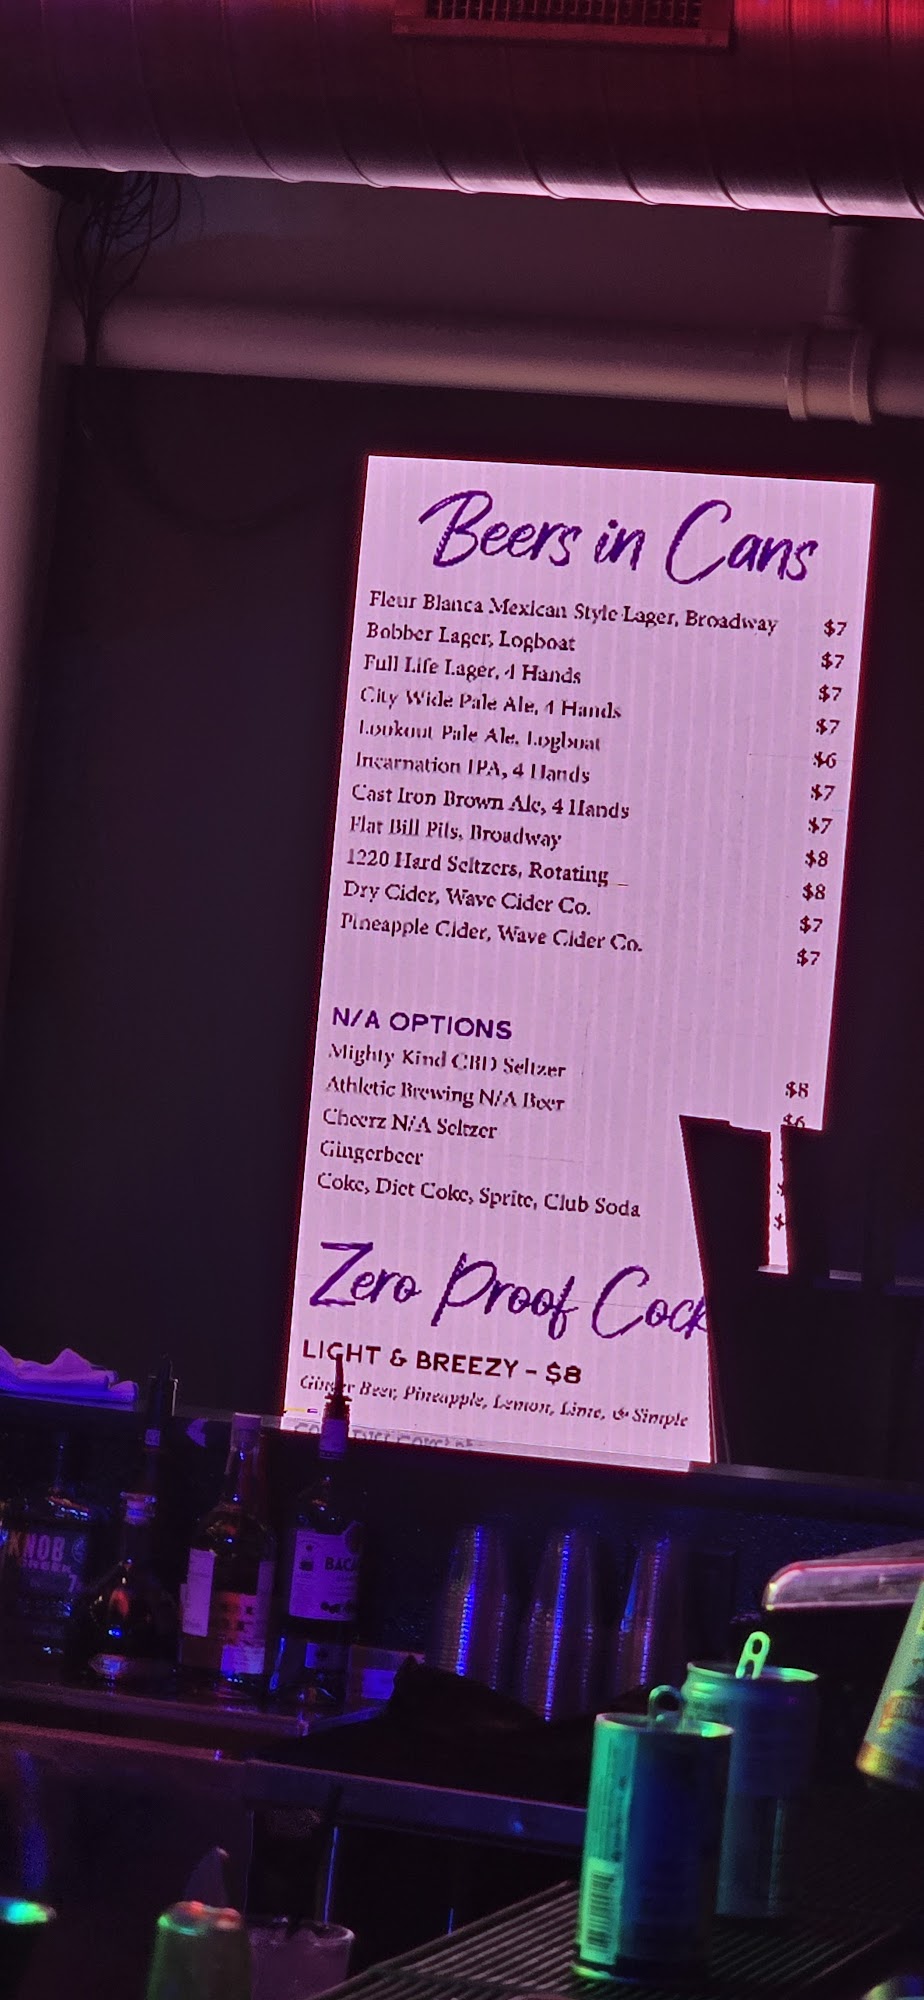 Beers in Cans
Fleur Blanca Mexican Style Lager, Broadway $7
Bobber Lager, Logboat $7
Full Life Lager, 4 Hands $7
City Wide Pale Ale, 4 Hands $7
Lookout Pale Ale, Logboat $6
Incarnation IPA, 4 Hands $7
Cast Iron Brown Ale, 4 Hands $7
Flat Bill Pils, Broadway $8
1220 Hard Seltzers, Rotating $8
Dry Cider, Wave Cider Co. $7
Pineapple Cider, Wave Cider Co. $7
N/A OPTIONS
Mighty Kind CBD Seltzer $8
Athletic Brewing N/A Beer $6
Cheerz N/A Seltzer
Gingerbeer
Coke, Diet Coke, Sprite, Club Soda
Zero Proof Cock
LIGHT & BREEZY - $8
Ginger Beer, Pineapple, Lemon, Lime, & Simple
KNOB
BACA